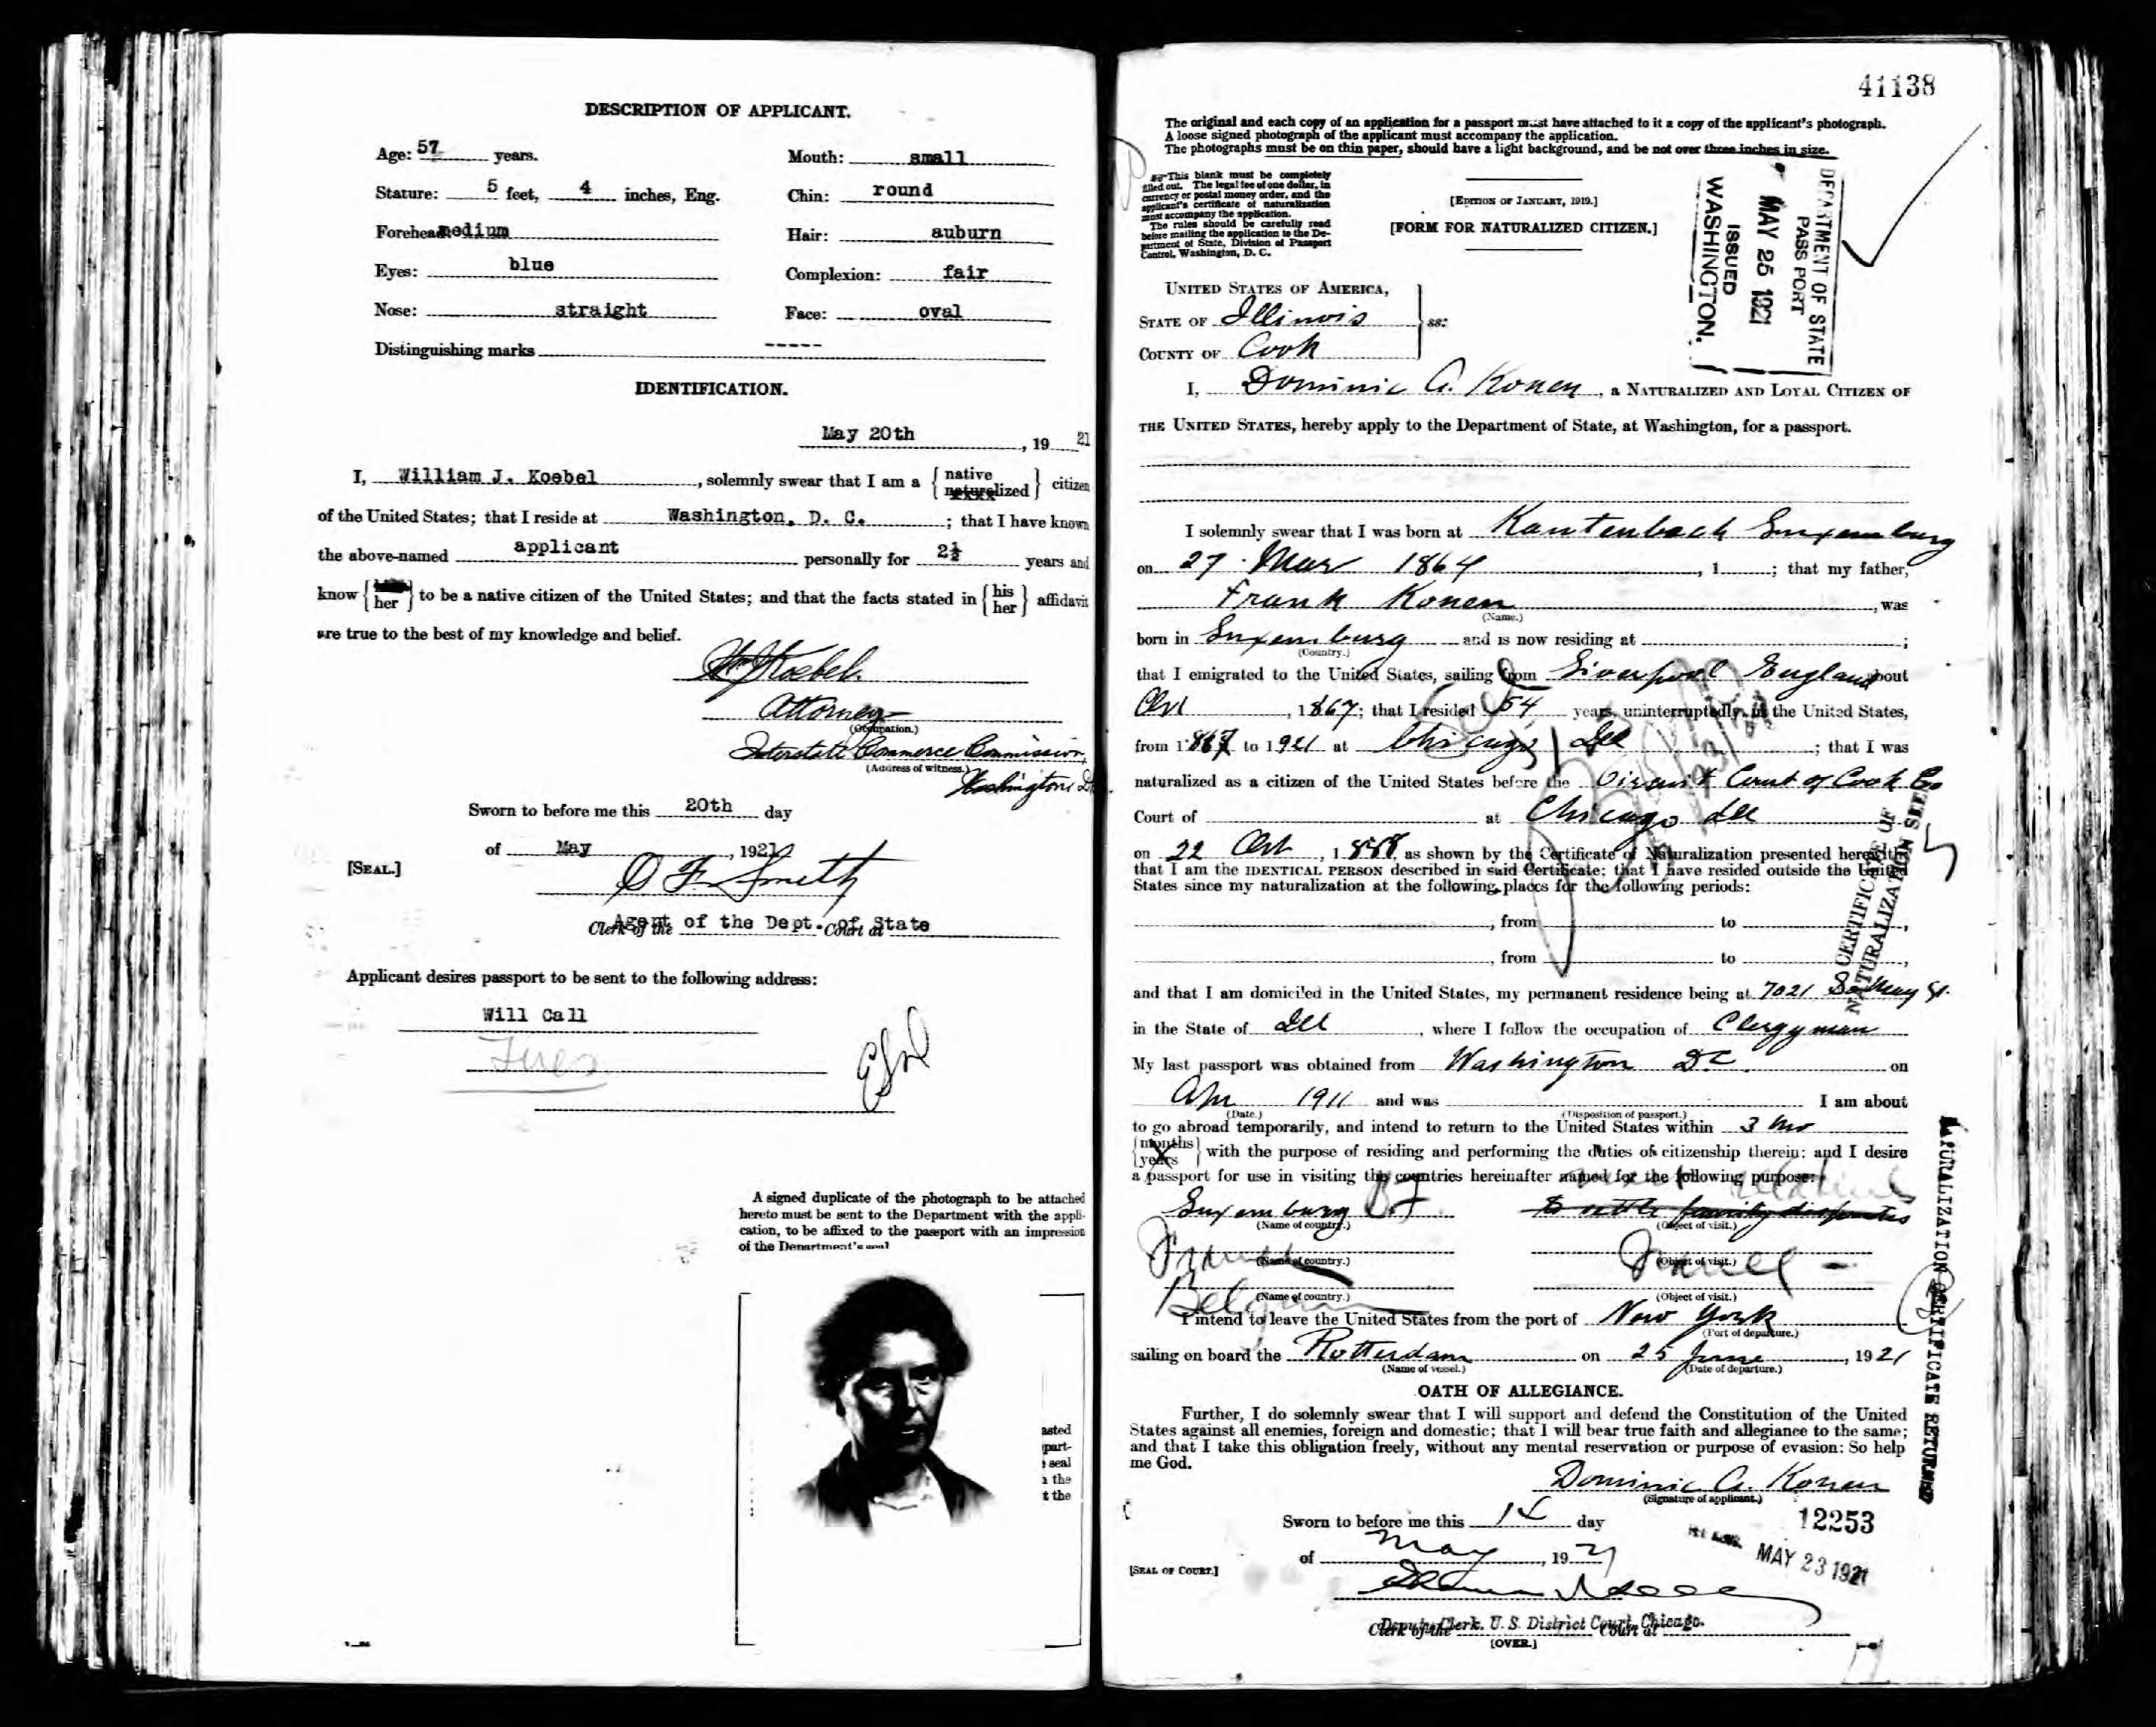 DESCRIPTION OF APPLICANT.
Age: 57 years.
Mouth: small
Stature: 5 feet, 4 inches, Eng.
Chin: round
Forehead medium
Hair: auburn
Eyes: blue
Complexion: fair
Nose: straight
Face: oval
Distinguishing marks -----
IDENTIFICATION.
May 20th, 19 21
I, William J. Koebel, solemnly swear that I am a { native naturalized } citizen
of the United States; that I reside at Washington, D. C.; that I have known
the above-named applicant personally for 2½ years and
know { her } to be a native citizen of the United States; and that the facts stated in { his her } affidavit
are true to the best of my knowledge and belief.
Wm J Koebel.
Attorney
(Occupation.)
Interstate Commerce Commission,
(Address of witness.)
Washington, D
Sworn to before me this 20th day
of May, 1921
[SEAL.]
O F Smith
Agent of the Dept. of State
Clerk of the Court at
Applicant desires passport to be sent to the following address:
Will Call
A signed duplicate of the photograph to be attached
hereto must be sent to the Department with the appli-
cation, to be affixed to the passport with an impression
of the Department's seal
asted
part-
seal
the
t the
41138
The original and each copy of an application for a passport must have attached to it a copy of the applicant's photograph.
A loose signed photograph of the applicant must accompany the application.
The photographs must be on thin paper, should have a light background, and be not over three inches in size.
This blank must be completely
filled out. The legal fee of one dollar, in
currency or postal money order, and the
applicant's certificate of naturalization
must accompany the application.
The rules should be carefully read
before mailing the application to the De-
partment of State, Division of Passport
Control, Washington, D. C.
[EDITION OF JANUARY, 1919.]
[FORM FOR NATURALIZED CITIZEN.]
DEPARTMENT OF STATE
PASSPORT
MAY 25 1921
ISSUED
WASHINGTON.
UNITED STATES OF AMERICA,
STATE OF Illinois
ss:
COUNTY OF Cook
I, Dominic A. Konen, a NATURALIZED AND LOYAL CITIZEN OF
THE UNITED STATES, hereby apply to the Department of State, at Washington, for a passport.
I solemnly swear that I was born at Kautenbach Luxemburg
on 27 Mar 1864, 1; that my father,
Frank Konen, was
(Name.)
born in Luxemburg and is now residing at ;
(Country.)
that I emigrated to the United States, sailing from Liverpool England about
Oct, 1867; that I resided 54 years, uninterruptedly, in the United States,
from 1867 to 1921 at Chicago Ill; that I was
naturalized as a citizen of the United States before the Circuit Court of Cook Co
Court of at Chicago Ill
on 22 Oct, 1888, as shown by the Certificate of Naturalization presented herewith;
that I am the IDENTICAL PERSON described in said Certificate; that I have resided outside the United
States since my naturalization at the following places for the following periods:
, from to ,
, from to ,
CERTIFICATE OF
NATURALIZATION SEE
and that I am domiciled in the United States, my permanent residence being at 7021 So May St.
in the State of Ill, where I follow the occupation of Clergyman
My last passport was obtained from Washington DC on
Apr 1911 and was I am about
(Date.) (Disposition of passport.)
to go abroad temporarily, and intend to return to the United States within 3 mo
{ months years } with the purpose of residing and performing the duties of citizenship therein; and I desire
a passport for use in visiting the countries hereinafter named for the following purpose:
Luxemburg to settle family disputes
(Name of country.) (Object of visit.)
France Travel
(Name of country.) (Object of visit.)
Belgium
(Name of country.) (Object of visit.)
I intend to leave the United States from the port of New York
(Port of departure.)
sailing on board the Rotterdam on 25 June, 1921
(Name of vessel.) (Date of departure.)
OATH OF ALLEGIANCE.
Further, I do solemnly swear that I will support and defend the Constitution of the United
States against all enemies, foreign and domestic; that I will bear true faith and allegiance to the same;
and that I take this obligation freely, without any mental reservation or purpose of evasion: So help
me God.
Dominic A. Konen
(Signature of applicant.)
Sworn to before me this day
12253
of May, 1921
MAY 23 1921
[SEAL OF COURT.]
Deputy Clerk, U. S. District Court, Chicago.
Clerk of the Court at
[OVER.]
NATURALIZATION CERTIFICATE RETURNED